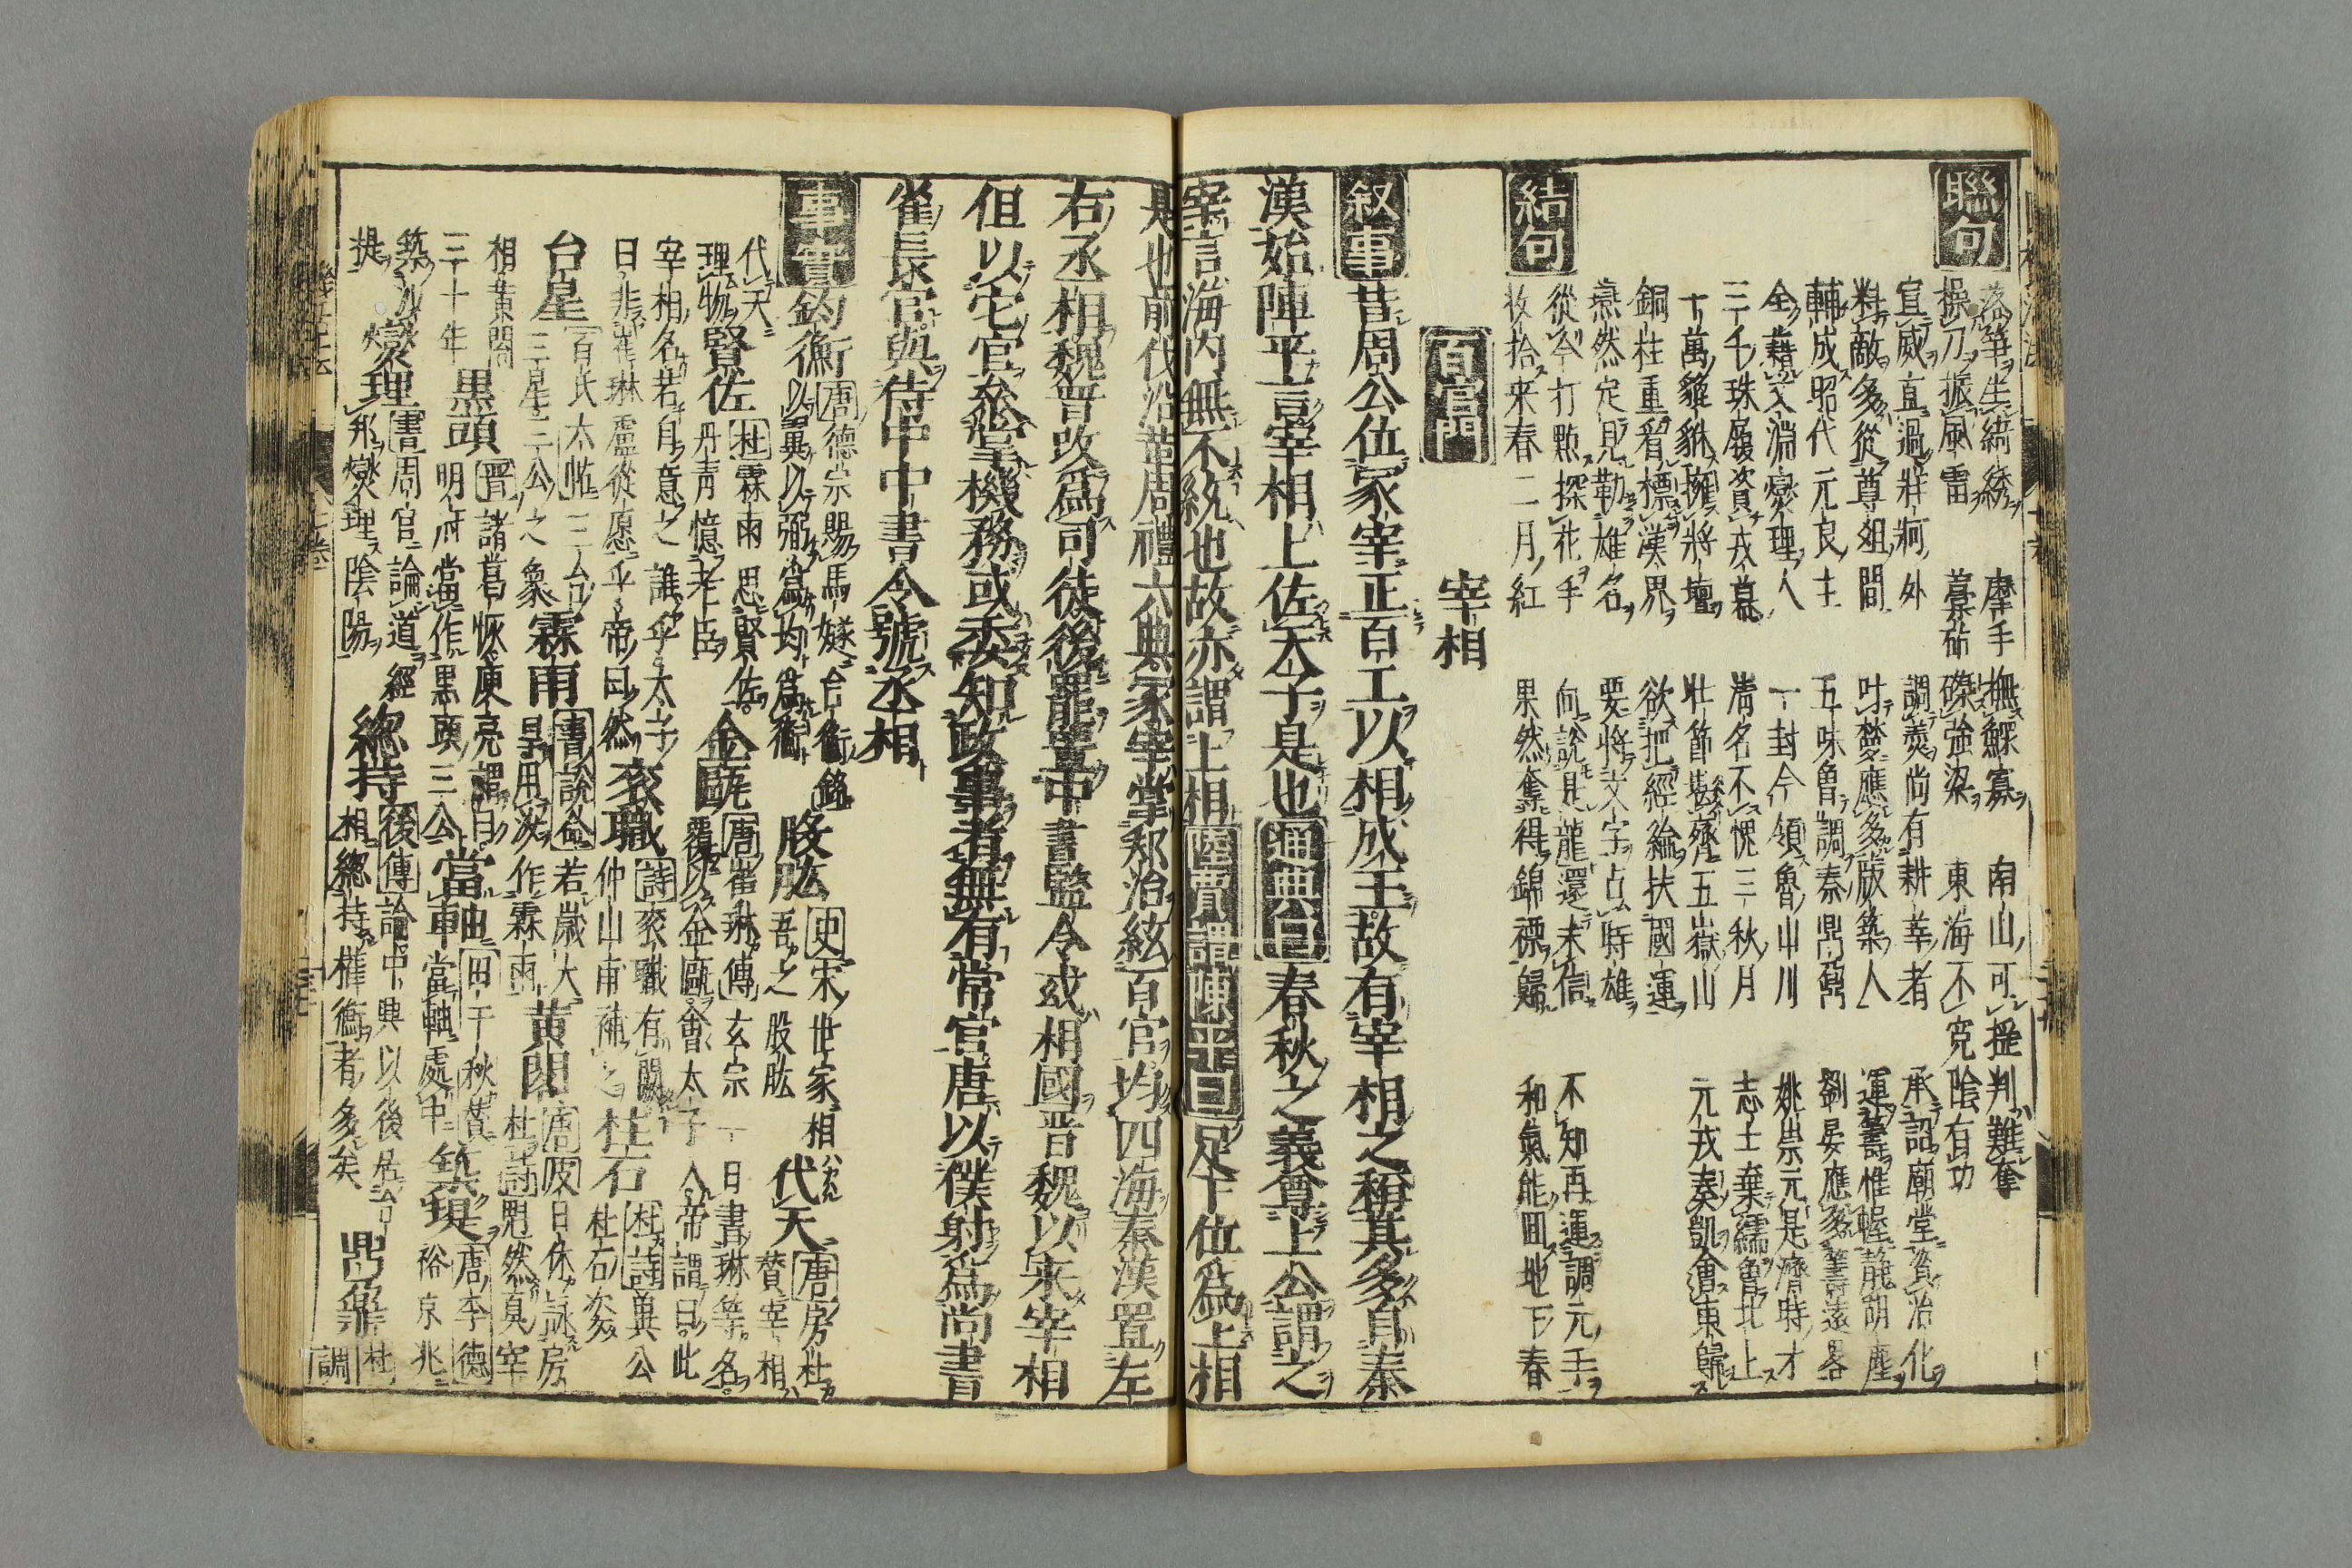 聯句
落筆生綺綉　摩手撫鰥寡　南山可捱判難奪
操刀振風雷　藁砧磔強梁　東海不寃陰有功
宣威直過牂牁外　調羹尚有耕莘者　承詔廟堂資治化
料敵多從尊俎間　叶夢應多版築人　運籌惟幄靜胡塵
輔成昭代元良主　五味魯調秦鼎鼐　劉晏應多籌遠畧
全藉文淵燮理人　一封今領魯山川　姚崇元是濟時才
三千珠履資戎幕　清名不愧三秋月　志士棄繻魯北上
十萬貔貅擁將壇　壯節齊五嶽山　元戎奏凱會東歸
銅柱重看標漢界　欲把經綸扶國運
燕然定見勒雄名　要將文字占時雄
結句
從今打點探花手　向說是龍還未信　不知再運調元手
收拾來春二月紅　果然奪得錦標歸　和氣能回地下春
百官門
宰相
叙事　昔周公位冢宰正百工以相成王故有宰相之稱其多自秦
漢始陳平言宰相上佐天子是也通典曰春秋之義尊上公謂之
宰言海内無不統也故亦謂上相陸賈謂陳平曰足下位爲上相
是也前代沿革周禮六典冢宰掌邦治統百官均四海秦漢置左
右丞相魏晋改爲司徒後罷置中書監令或相國晋魏以來宰相
但以它官叅掌機務或委知政事者無有常官唐以僕射爲尚書
省長官與侍中中書令號丞相
事實　鈞衡　唐德宗賜馬燧台衡銘　以翼以弼爲均爲衡　股肱　史宋世家相吾之股肱　代天　唐房杜贊宰相
代天理物　賢佐　杜霖雨思賢佐　丹青憶老臣　金甌　唐崔琳傳玄宗一日書琳等名覆以金甌會太子入帝謂曰此
宰相名若自意之誰乎太子曰非崔琳盧從愿乎帝曰然　衮職　詩衮職有闕仲山甫補之　柱石　杜詩冀公柱石姿
台星　百氏太恠三台三星三公之象　霖雨　書説命若歲大旱用汝作霖雨　黄閤　唐 日休詠房杜詩 然真宰
相黄閤三十年　黒頭　晋諸葛恢庾亮謂曰明府當作黒頭三公　當軸　田千秋 當軸處中　築堤　唐李德裕京兆
築沙堤　燮理　書周官論道經邦燮理陰陽　緫持　後傳論中興以後居台相緫持權衡者多矣　鼎鼐　杜調